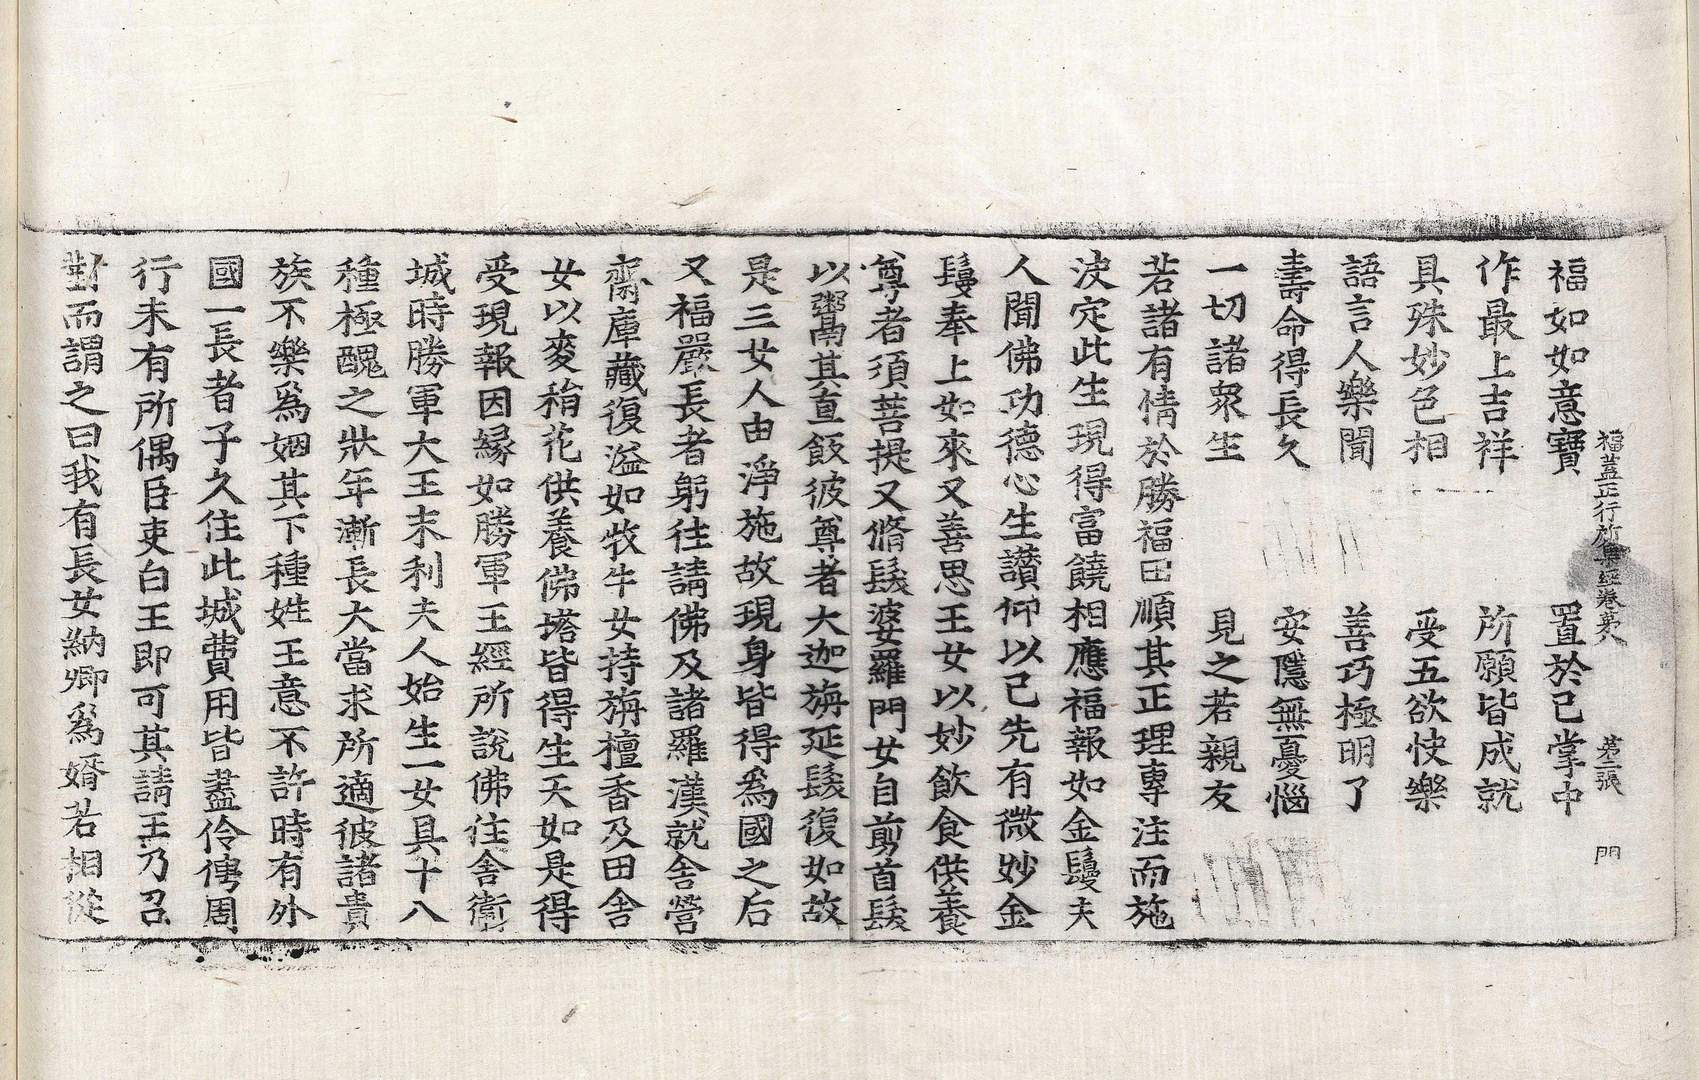 福蓋正行所集經卷第八 第三張 門
福如如意寶 置於已掌中
作最上吉祥 所願皆成就
具殊妙色相 受五欲快樂
語言人樂聞 善巧極明了
壽命得長久 安隱無憂惱
一切諸衆生 見之若親友
若諸有情於勝福田順其正理專注而施
决定此生現得富饒相應福報如金鬘夫
人聞佛功德心生讃仰以己先有微妙金
鬘奉上如來又善思王女以妙飲食供養
尊者須菩提又脩髮婆羅門女自剪首髮
以鬻其直飯彼尊者大迦旃延髮復如故
是三女人由淨施故現身皆得爲國之后
又福嚴長者躬往請佛及諸羅漢就舍營
齋庫藏復溢如牧牛女持旃檀香及田舍
女以麥稍花供養佛塔皆得生天如是得
受現報因緣如勝軍王經所說佛住舍衞
城時勝軍大王末利夫人始生一女具十八
種極醜之狀年漸長大當求所適彼諸貴
族不樂爲姻其下種姓王意不許時有外
國一長者子久住此城費用皆盡伶俜周
行未有所偶臣吏白王即可其請王乃召
對而謂之曰我有長女納卿爲婿若相從